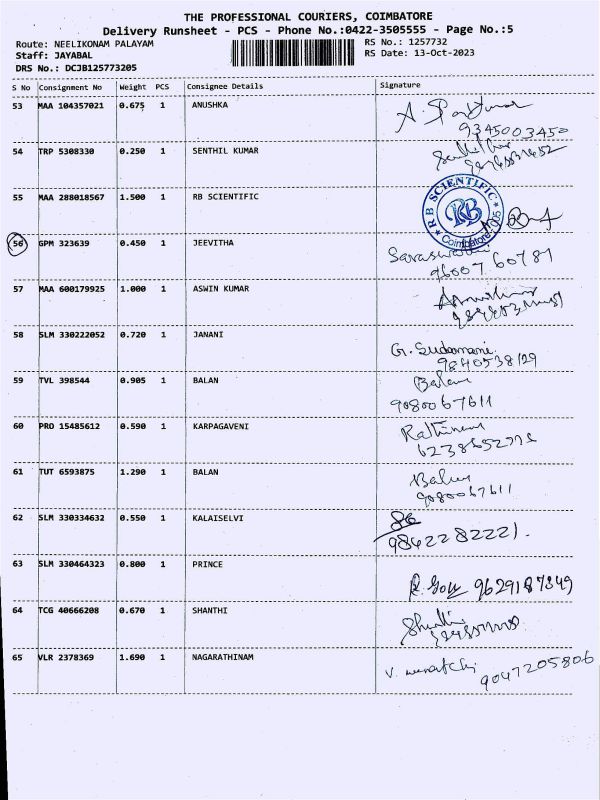 THE PROFESSIONAL COURIERS, COIMBATORE
Delivery Runsheet - PCS - Phone No.:0422-3505555 - Page No.:5
Route: NEELIKONAM PALAYAM RS No.: 1257732
Staff: JAYABAL RS Date: 13-Oct-2023
DRS No.: DCJB125773205
S No Consignment No Weight PCS Consignee Details Signature
53 MAA 104357021 0.675 1 ANUSHKA
9345003450
54 TRP 5308330 0.250 1 SENTHIL KUMAR
55 MAA 288018567 1.500 1 RB SCIENTIFIC
R B SCIENTIFIC RB
56 GPM 323639 0.450 1 JEEVITHA
96007 60781
57 MAA 600179925 1.000 1 ASWIN KUMAR
58 SLM 330222052 0.720 1 JANANI
G. Sudamani.
9840538129
59 TVL 398544 0.905 1 BALAN Balan
9080067611
60 PRO 15485612 0.590 1 KARPAGAVENI
61 TUT 6593875 1.290 1 BALAN Balan
9080067611
62 SLM 330334632 0.550 1 KALAISELVI
9842282221.
63 SLM 330464323 0.800 1 PRINCE
9629187349
64 TCG 40666208 0.670 1 SHANTHI Shanthi
65 VLR 2378369 1.690 1 NAGARATHINAM
9047205806